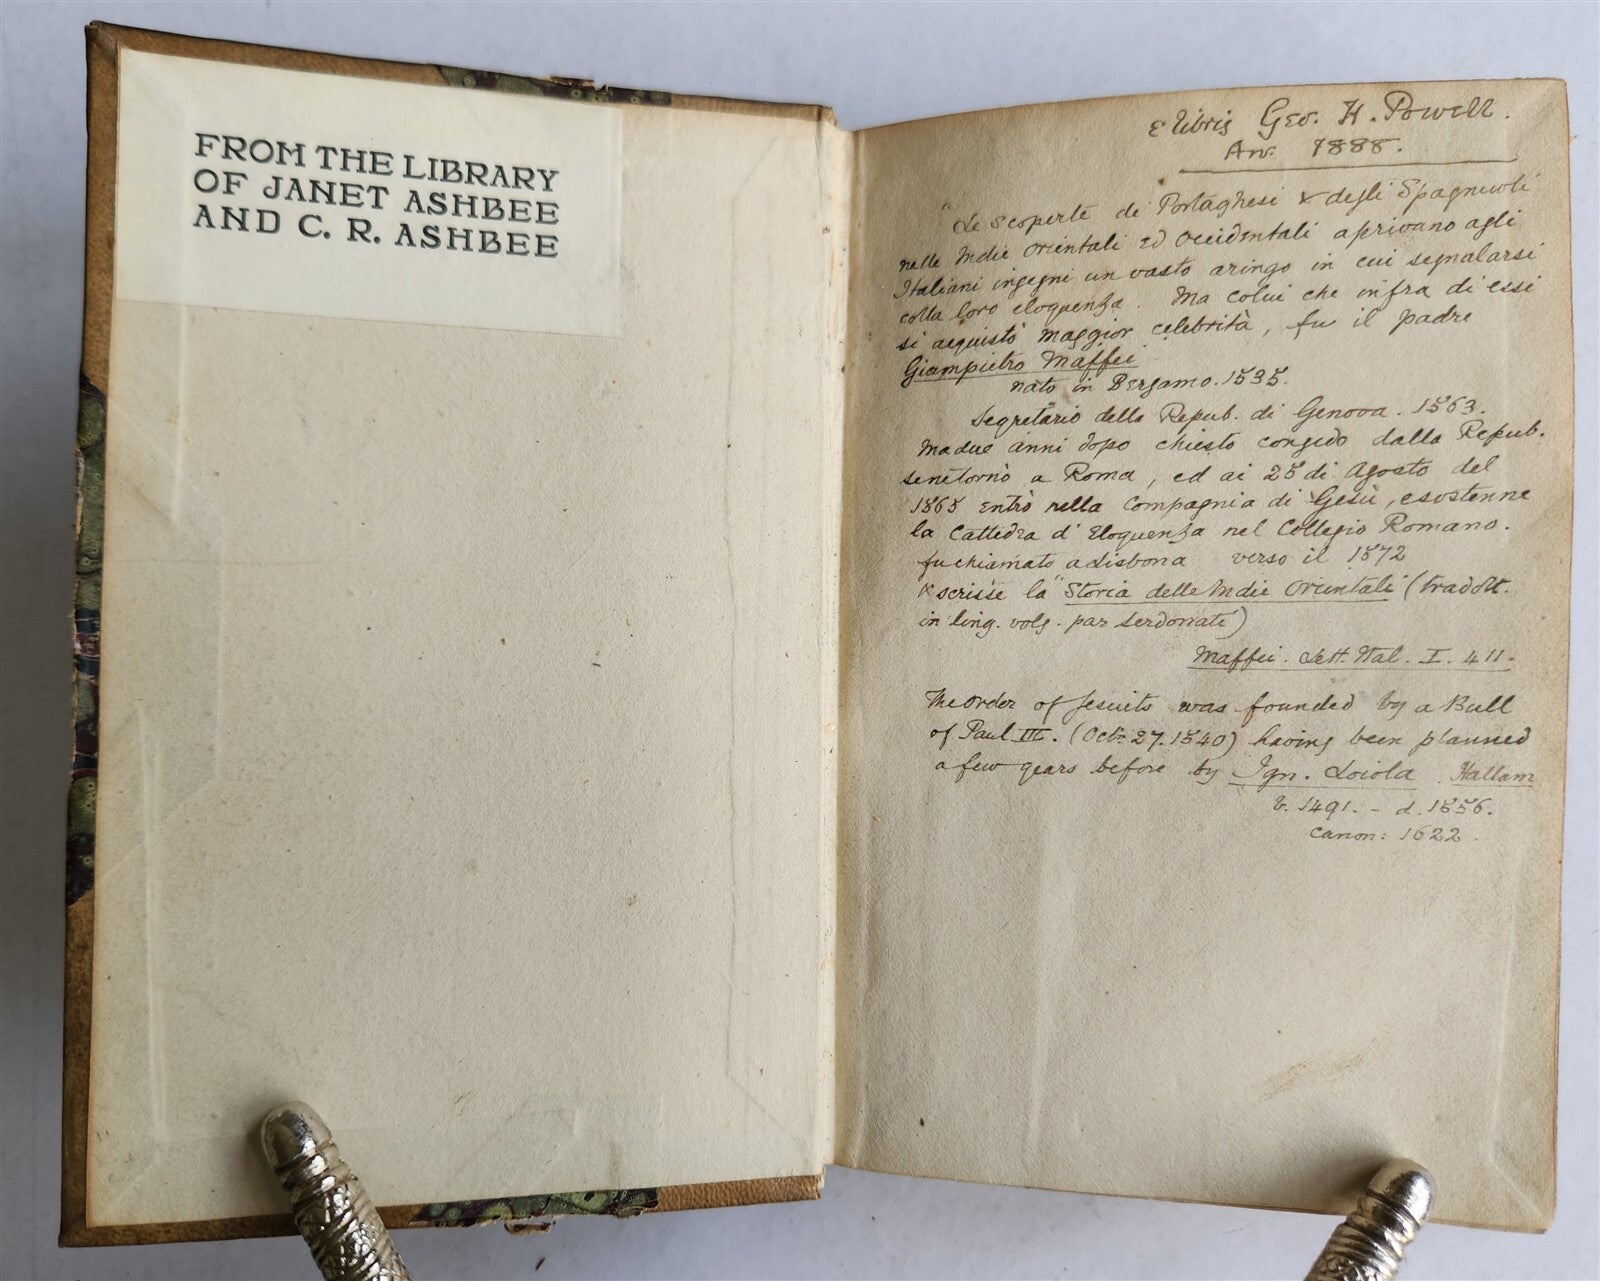 FROM THE LIBRARY
OF JANET ASHBEE
AND C. R. ASHBEE
E libris Geo. H. Powell.
An. 1888.
"Le Scoperte de Portaghesi & degli Spagnuoli
nelle Indie Orientali ed Occidentali aprivano agli
Italiani ingegni un vasto aringo in cui segnalarsi
colla loro eloquenza. Ma colui che infra di essi
si acquistò maggior celebrità, fu il padre
Giampietro Maffei
nato in Bergamo. 1535.
Segretario della Repub. di Genova. 1563.
Ma due anni dopo chiesto congedo dalla Repub.
se ne tornò a Roma, ed ai 25 di Agosto del
1565 entrò nella Compagnia di Gesù, e sostenne
la Cattedra d'Eloquenza nel Collegio Romano.
fu chiamato a Lisbona verso il 1572
& scrisse la "Storia delle Indie Orientali" (tradott.
in ling. volg. par Serdonati)
Maffei. Lett. Ital. I. 411.
The order of Jesuits was founded by a Bull
of Paul III. (Octr 27. 1540) having been planned
a few years before by Ign. Loiola Hallam
b. 1491. - d. 1556.
Canon: 1622.